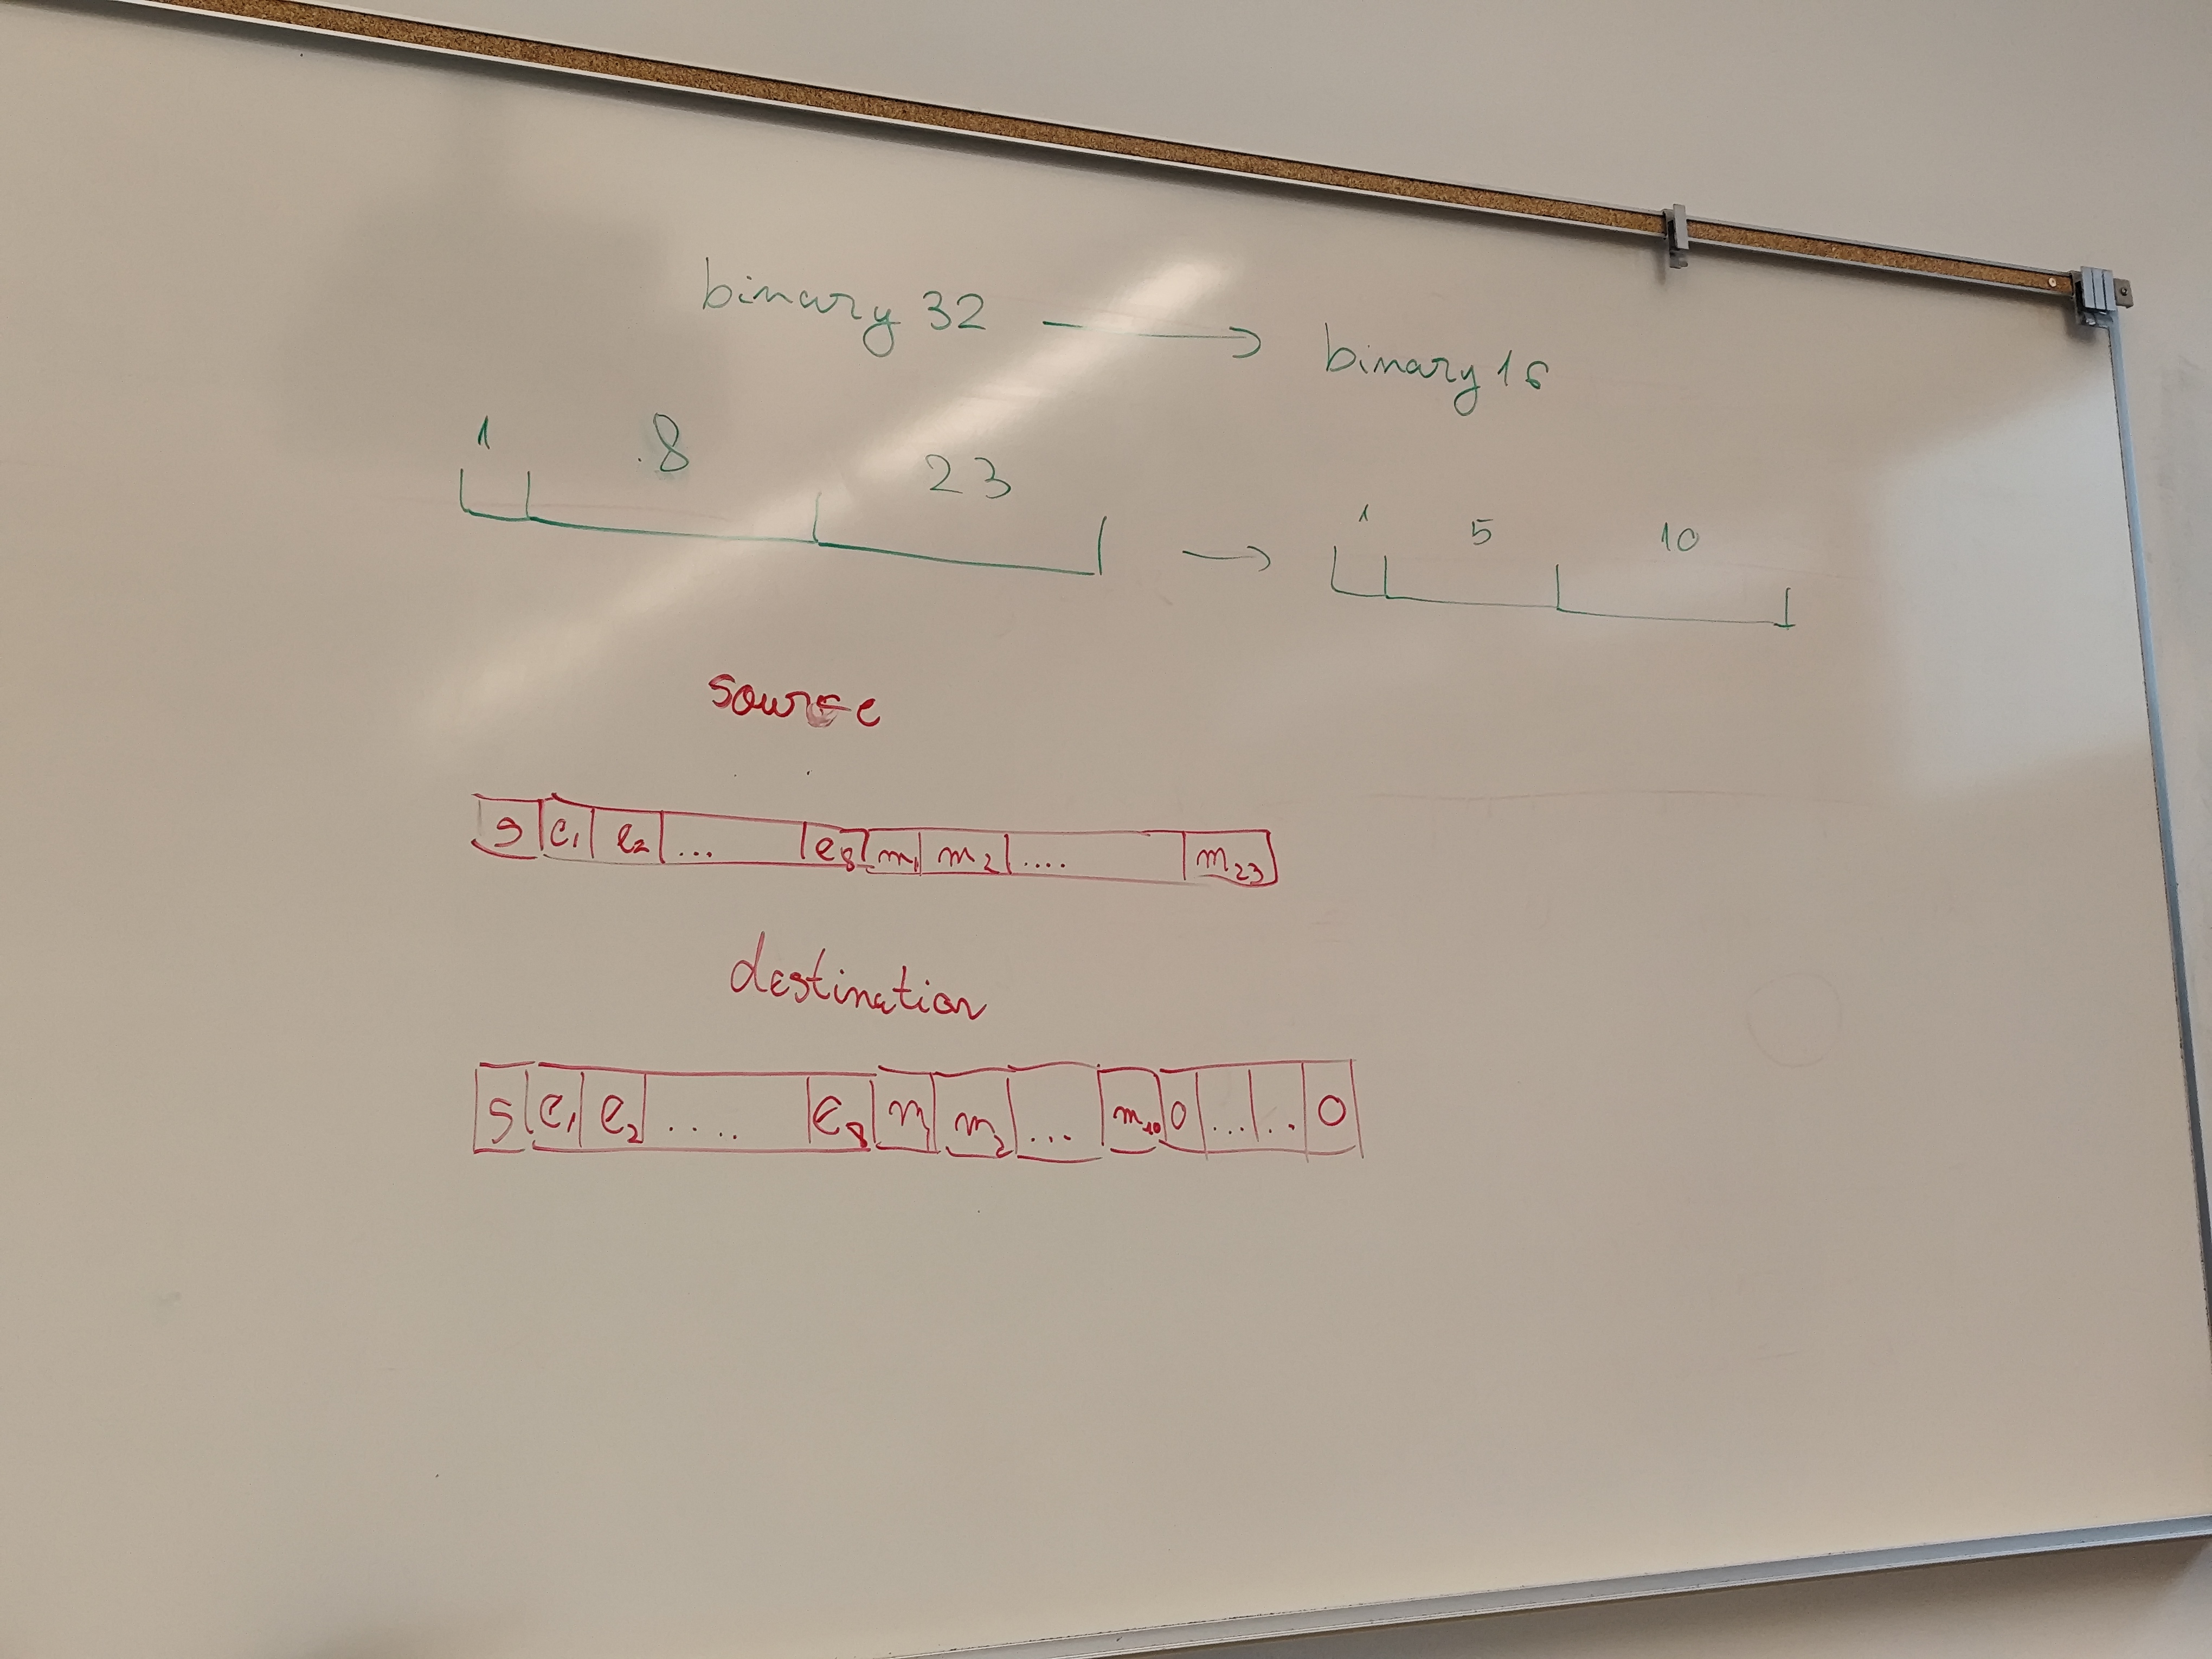 binary 32 → binary 16
1 8 23 → 1 5 10
source
s e₁ e₂ ... e₈ m₁ m₂ .... m₂₃
destination
s e₁ e₂ .... e₈ m₁ m₂ ... m₁₀ 0 ... .. 0